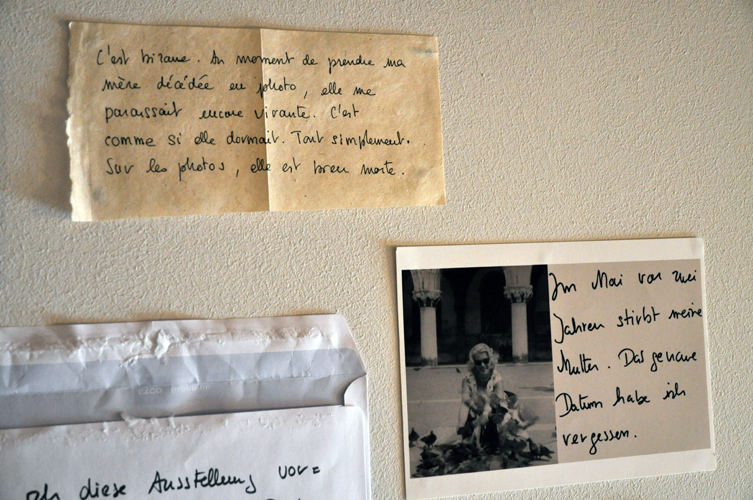 C'est bizarre. Au moment de prendre ma
mère décédée en photo, elle me
paraissait encore vivante. C'est
comme si elle dormait. Tout simplement.
Sur les photos, elle est bien morte.
Im Mai vor zwei
Jahren stirbt meine
Mutter. Das genaue
Datum habe ich
vergessen.
diese Ausstellung vor=